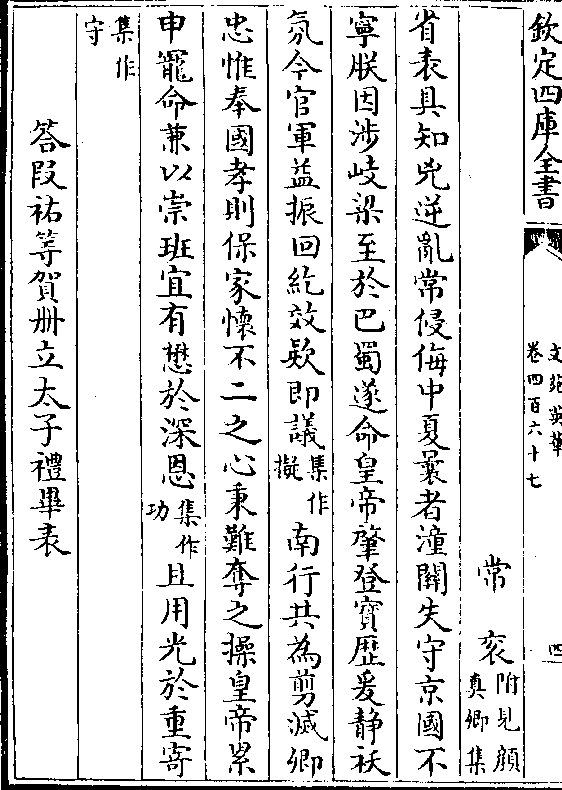 欽定四庫全書
文苑英華
卷四百六十七
四
常衮附見顔真卿集
省表具知兇逆亂常侵侮中夏曩者潼關失守京國不
寧朕因涉岐梁至於巴蜀遂命皇帝肇登寳歴爰静祅
氛今官軍益振回紇效欵即議集作擬南行共為剪滅卿
忠惟奉國孝則保家懷不二之心秉難奪之操皇帝累
申寵命兼以崇班宜有懋於深恩集作功且用光於重寄
集作守
答段祐等賀册立太子禮畢表